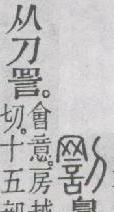 罰
从刀詈。
會意。房越
切。十五部